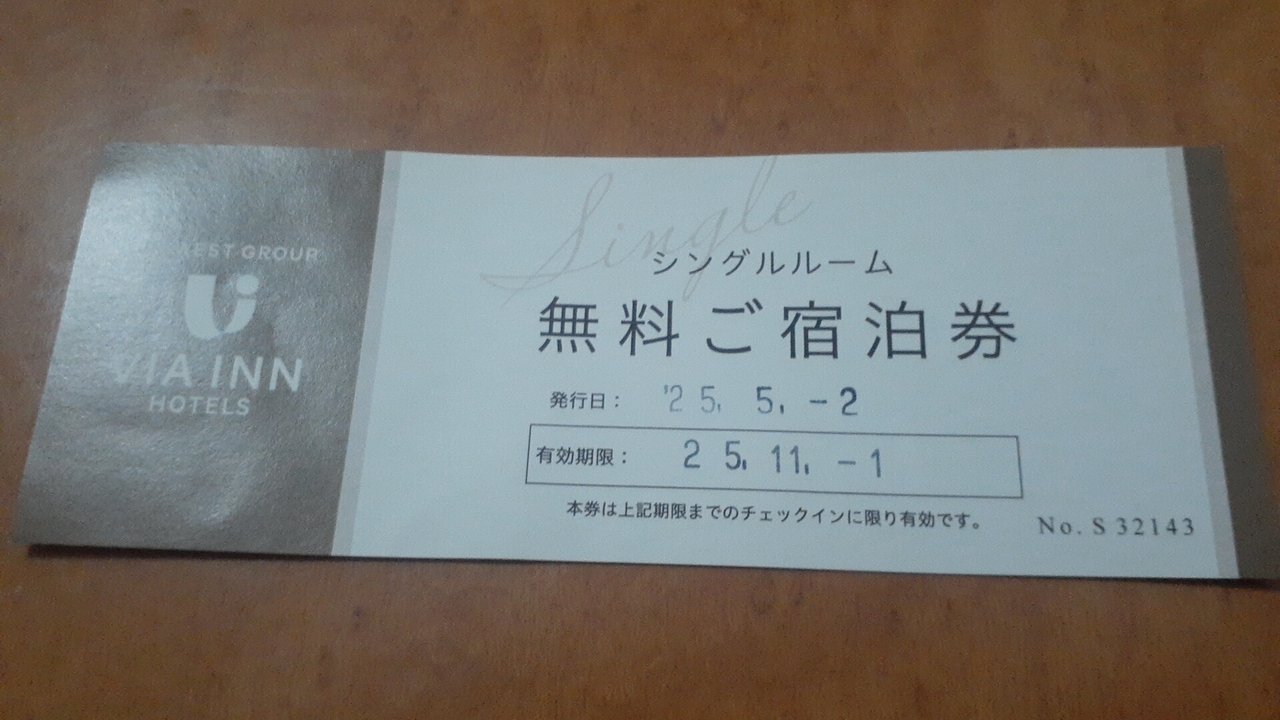 WEST GROUP
VIA INN
HOTELS
Single
シングルルーム
無料ご宿泊券
発行日： '25. 5. -2
有効期限： 25. 11. -1
本券は上記期限までのチェックインに限り有効です。
No. S 32143